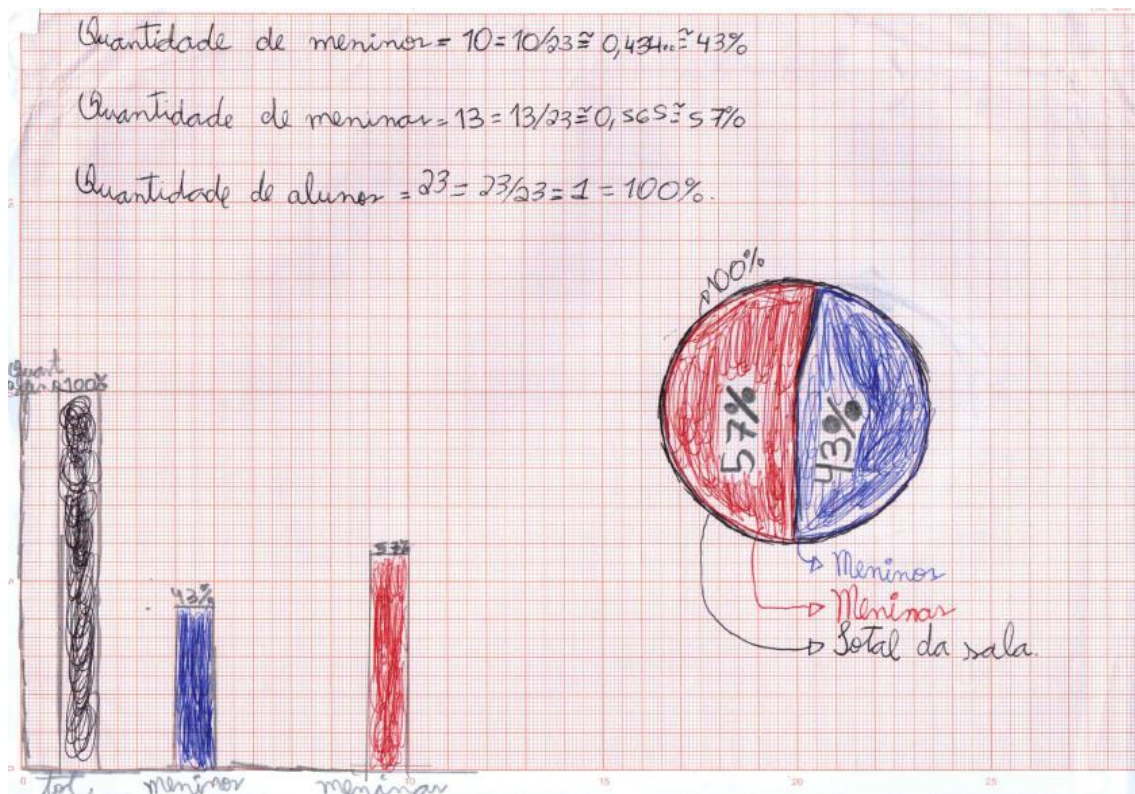 Quantidade de meninos = 10 = 10/23 ≅ 0,434.. ≅ 43%
Quantidade de meninas = 13 = 13/23 ≅ 0,565 ≅ 57%
Quantidade de alunos = 23 = 23/23 = 1 = 100%.
100%
57%
43%
Meninos
Meninas
Total da sala.
Quant
100%
43%
57%
tot.
meninos
meninas
5
0
10
15
20
25